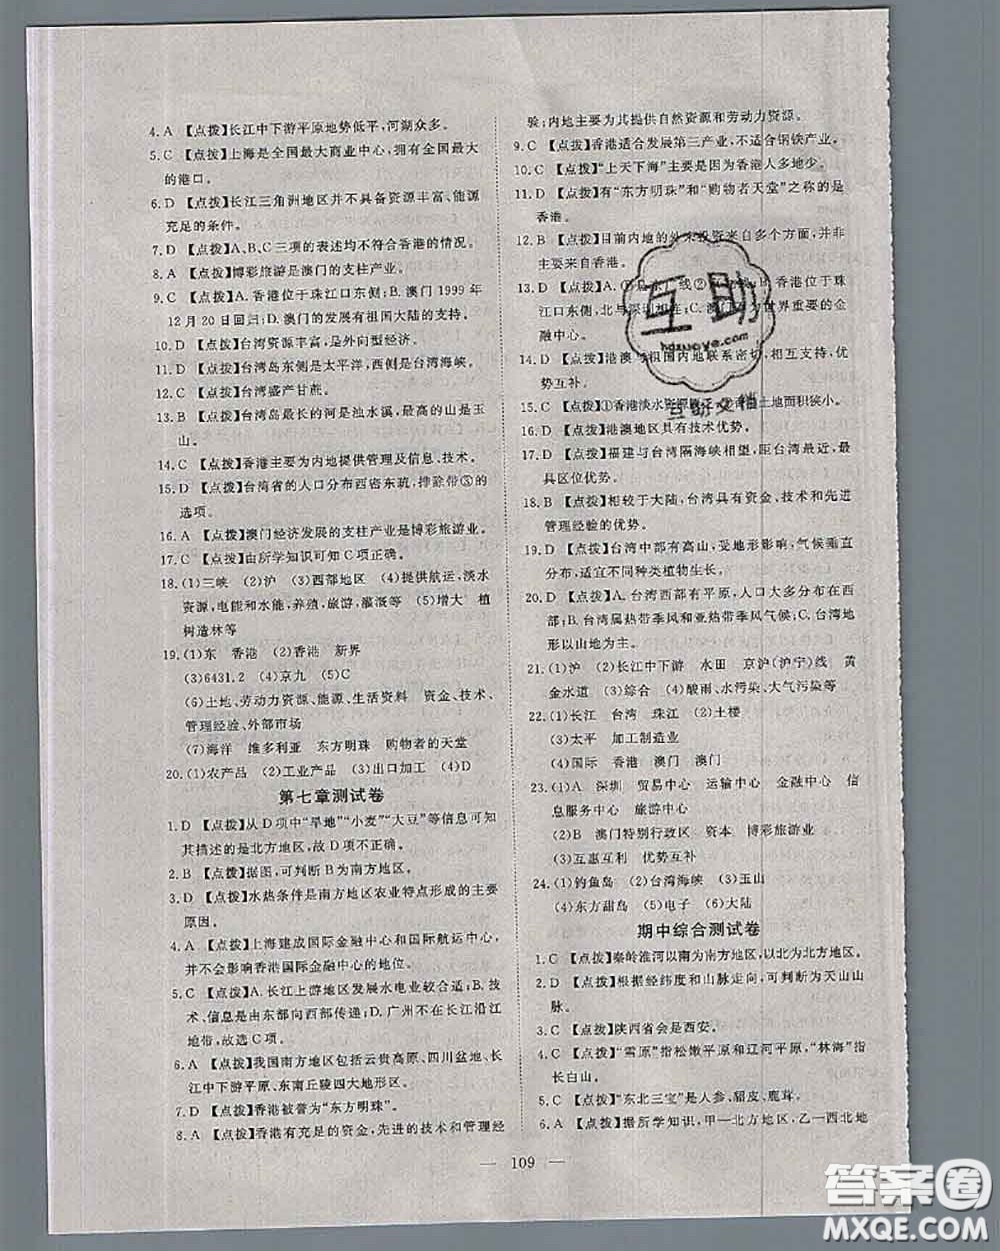 4. A 【点拨】长江中下游平原地势低平,河湖众多。
5. C 【点拨】上海是全国最大商业中心,拥有全国最大
的港口。
6. D 【点拨】长江三角洲地区并不具备资源丰富、能源
充足的条件。
7. D 【点拨】A、B、C三项的表述均不符合香港的情况。
8. A 【点拨】博彩旅游是澳门的支柱产业。
9. C 【点拨】A.香港位于珠江口东侧;B.澳门1999年
12月20日回归;D.澳门的发展有祖国大陆的支持。
10. D 【点拨】台湾资源丰富,是外向型经济。
11. D 【点拨】台湾岛东侧是太平洋,西侧是台湾海峡。
12. C 【点拨】台湾盛产甘蔗。
13. B 【点拨】台湾岛最长的河是浊水溪,最高的山是玉
山。
14. C 【点拨】香港主要为内地提供管理及信息、技术。
15. D 【点拨】台湾省的人口分布西密东疏,排除带③的
选项。
16. A 【点拨】澳门经济发展的支柱产业是博彩旅游业。
17. C 【点拨】由所学知识可知C项正确。
18. (1)三峡 (2)沪 (3)西部地区 (4)提供航运,淡水
资源,电能和水能,养殖,旅游,灌溉等 (5)增大 植
树造林等
19. (1)东 香港 (2)香港 新界
(3)6431.2 (4)京九 (5)C
(6)土地、劳动力资源、能源、生活资料 资金、技术、
管理经验、外部市场
(7)海洋 维多利亚 东方明珠 购物者的天堂
20. (1)农产品 (2)工业产品 (3)出口加工 (4)D
第七章测试卷
1. D 【点拨】从D项中“旱地”“小麦”“大豆”等信息可知
其描述的是北方地区,故D项不正确。
2. B 【点拨】据图,可判断B为南方地区。
3. D 【点拨】水热条件是南方地区农业特点形成的主要
原因。
4. A 【点拨】上海建成国际金融中心和国际航运中心,
并不会影响香港国际金融中心的地位。
5. C 【点拨】A.长江上游地区发展水电业较合适;B.技
术、信息是由东部向西部传递;D.广州不在长江沿江
地带,故选C项。
6. A 【点拨】我国南方地区包括云贵高原、四川盆地、长
江中下游平原、东南丘陵四大地形区。
7. D 【点拨】香港被誉为“东方明珠”。
8. A 【点拨】香港有充足的资金,先进的技术和管理经
验;内地主要为其提供自然资源和劳动力资源。
9. C 【点拨】香港适合发展第三产业,不适合钢铁产业。
10. C 【点拨】“上天下海”主要是因为香港人多地少。
11. D 【点拨】有“东方明珠”和“购物者天堂”之称的是
香港。
12. B 【点拨】目前内地的外来投资来自多个方面,并非
主要来自香港。
13. D 【点拨】A.①是京广线②
江口东侧,北与深圳相连;C.澳门 世界重要的金
融中心。
14. D 【点拨】港澳与祖国内地联系密切,相互支持,优
势互补。
15. C 【点拨】①香港淡水资源 土地面积狭小。
16. D 【点拨】港澳地区具有技术优势。
17. D 【点拨】福建与台湾隔海峡相望,距台湾最近,最
具区位优势。
18. B 【点拨】相较于大陆,台湾具有资金、技术和先进
管理经验的优势。
19. D 【点拨】台湾中部有高山,受地形影响,气候垂直
分布,适宜不同种类植物生长。
20. D 【点拨】A.台湾西部有平原,人口大多分布在西
部;B.台湾属热带季风和亚热带季风气候;C.台湾地
形以山地为主。
21. (1)沪 (2)长江中下游 水田 京沪(沪宁)线 黄
金水道 (3)综合 (4)酸雨、水污染、大气污染等
22. (1)长江 台湾 珠江 (2)土楼
(3)太平 加工制造业
(4)国际 香港 澳门 澳门
23. (1)A 深圳 贸易中心 运输中心 金融中心 信
息服务中心 旅游中心
(2)B 澳门特别行政区 资本 博彩旅游业
(3)互惠互利 优势互补
24. (1)钓鱼岛 (2)台湾海峡 (3)玉山
(4)东方甜岛 (5)电子 (6)大陆
期中综合测试卷
1. C 【点拨】秦岭淮河以南为南方地区,以北为北方地区。
2. D 【点拨】根据经纬度和山脉走向,可判断为天山山
脉。
3. C 【点拨】陕西省会是西安。
4. C 【点拨】“雪原”指松嫩平原和辽河平原,“林海”指
长白山。
5. C 【点拨】“东北三宝”是人参、貂皮、鹿茸。
6. A 【点拨】据所学知识,甲—北方地区,乙—西北地
— 109 —
互助
hdzuoye.com
互助文档
答案圈
MXQE.COM